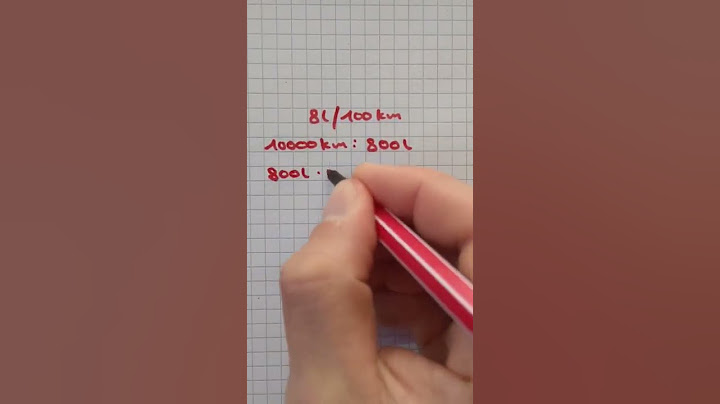 8l/100km
10000km: 800l
800l ·